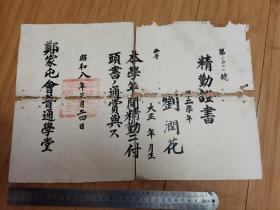 精勤證書
第二學年
劉潤花
大正 年 月生
本學年間精勤ニ付
頭書ノ通賞與ス
昭和八年三月二四日
鄭家屯會普通學堂